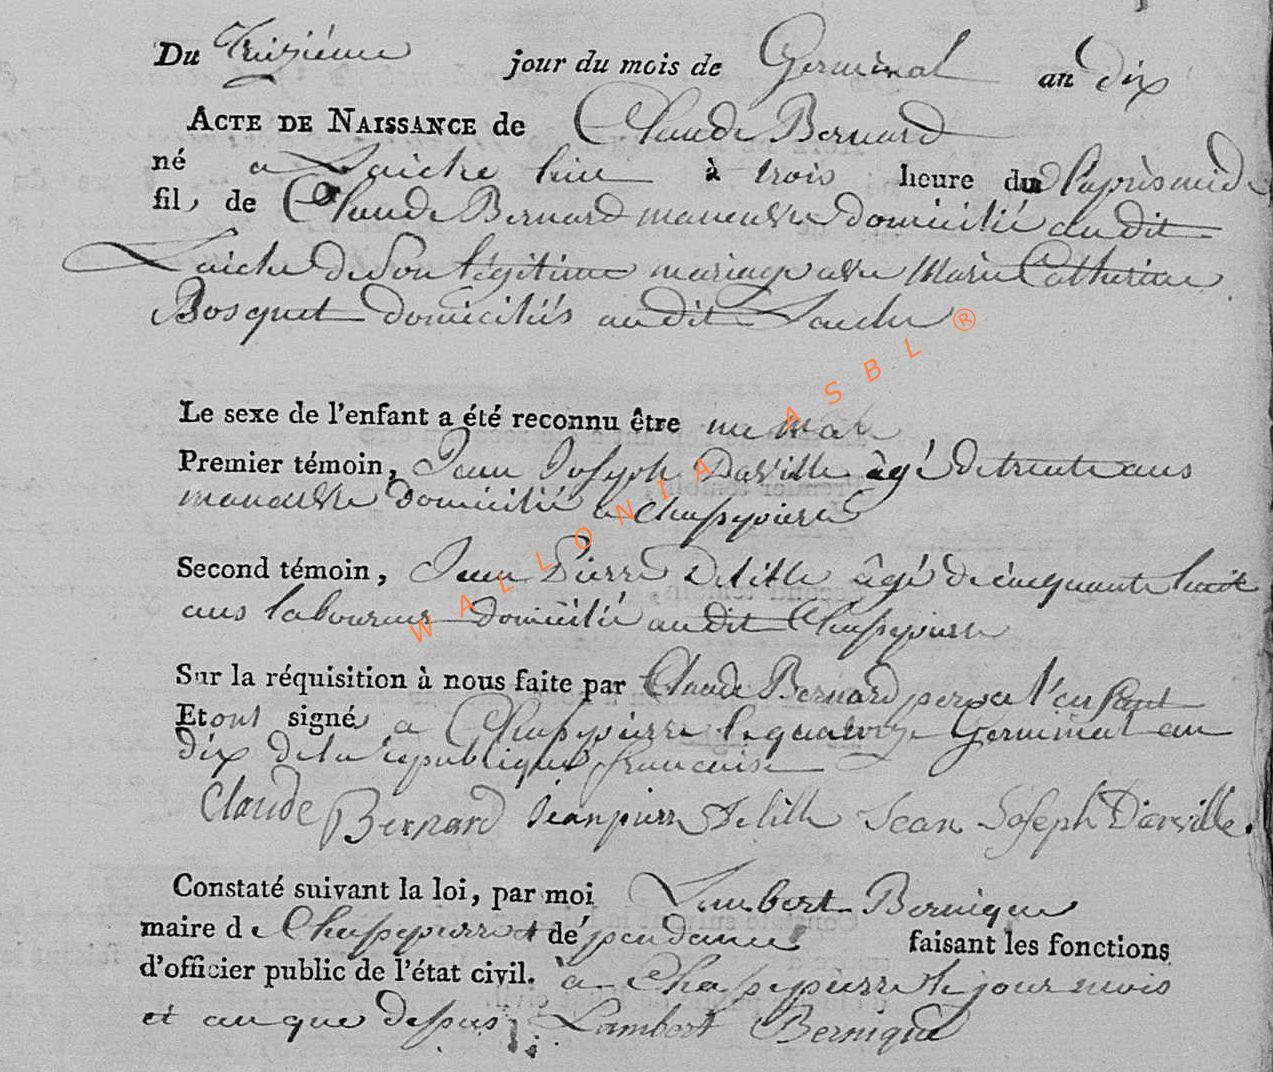 Du Treizième jour du mois de Germinal an dix
ACTE DE NAISSANCE de Claude Bernard
né a Laiche hier à trois heure du l'aprèsmidi
fils de Claude Bernard maneuvre domicilié audit
Laiche de son légitime mariage avec Marie Catherine
Bosquet domiciliés audit Laiche
Le sexe de l'enfant a été reconnu être un mâle
Premier témoin, Jean Joseph Daville âgé de trente ans
maneuvre domicilié a Chassepierre
Second témoin, Jean Pierre Delille âgé de cinquante huit
ans laboureur domicilié audit Chassepierre
Sur la réquisition à nous faite par Claude Bernard pere de l'enfant
Et ont signé a Chassepierre le quatorze Germinal an
dix de la republique francaise
Claude Bernard Jean pierre Delille Jean Joseph Darville.
Constaté suivant la loi, par moi Lambert Bernique
maire de Chassepierre et dépendances faisant les fonctions
d'officier public de l'état civil. à Chassepierre le jour mois
et an que dessus Lambert Bernique
WALLONIA ASBL ®